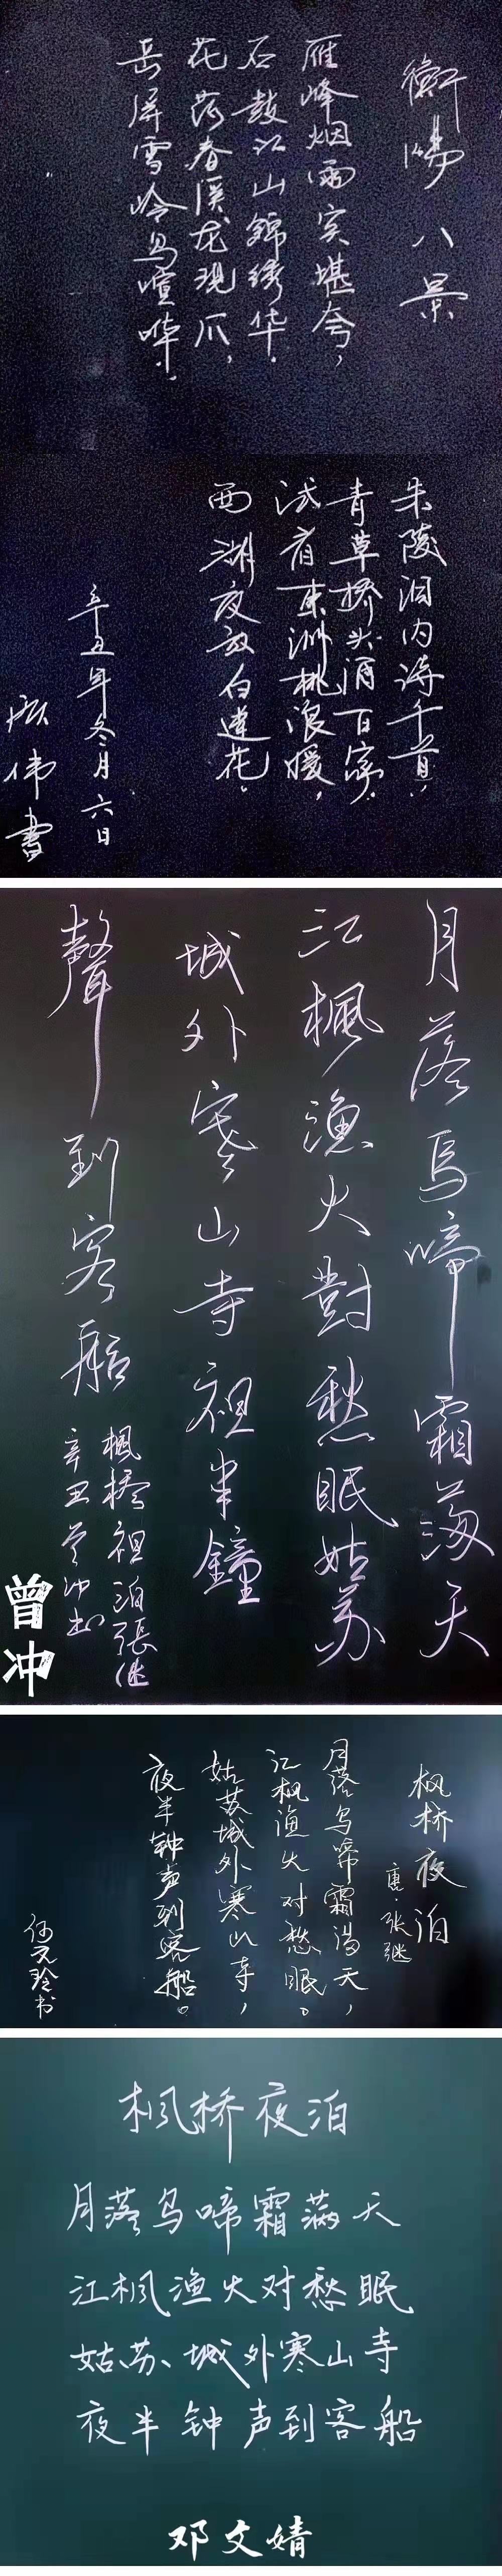 衡陽八景
雁峰烟雨实堪夸，
石鼓江山錦绣华.
花药春溪龙现爪，
岳屏雪岭鸟喧哗.
朱陵洞内诗千首，
青草桥头酒百家.
试看东洲桃浪暖，
西湖夜放白莲花。
辛丑年冬月六日
伟書
月落烏啼霜满天
江楓漁火對愁眠姑苏
城外寒山寺夜半鐘
聲到客船
楓橋夜泊張继
辛丑曾冲书
曾冲
枫桥夜泊
唐·张继
月落乌啼霜满天，
江枫渔火对愁眠。
姑苏城外寒山寺，
夜半钟声到客船。
何元玲书
楓桥夜泊
月落乌啼霜满天
江楓渔火对愁眠
姑苏城外寒山寺
夜半钟声到客船
邓文婧